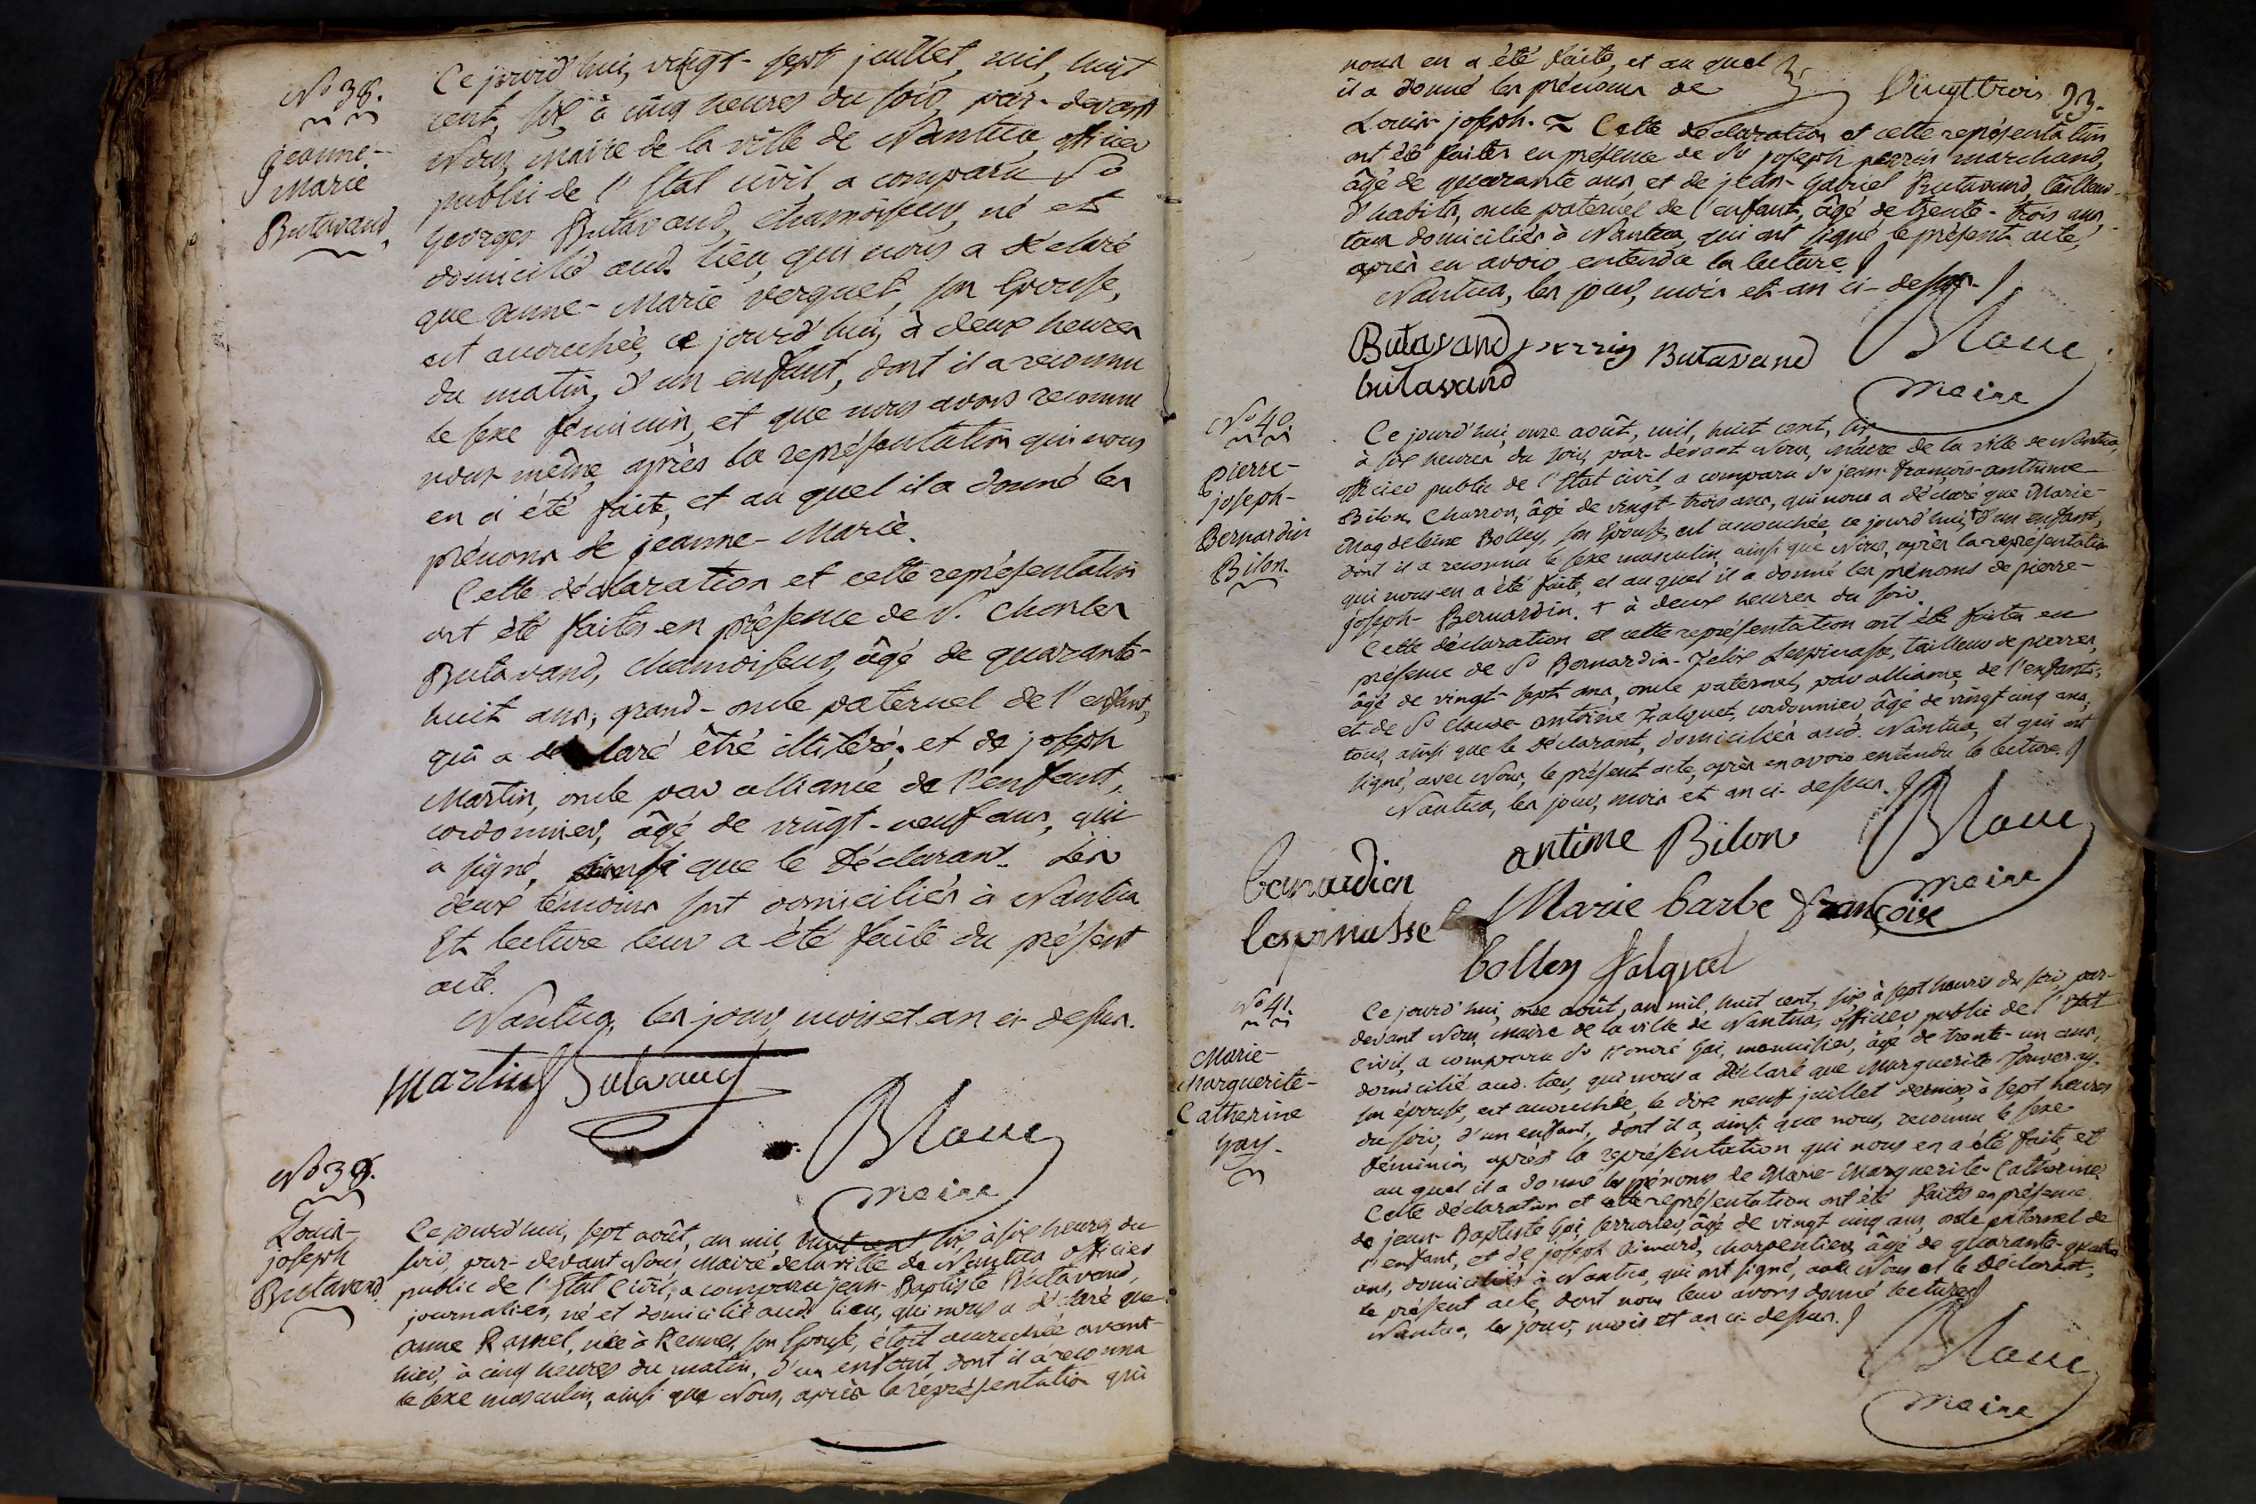 No 38.
Jeanne-
Marie
Butavand.
Ce jourd'hui, vingt-sept juillet, mil, huit
cent, six, à cinq heures du soir, par-devant
Nous, Maire de la ville de Nantua, officier
public de l'Etat civil, a comparu Sr
Georges Butavand, Chamoiseur, né et
domicilié aud. lieu, qui nous a déclaré
que Anne-Marie Verguet, son Epouse,
est accouchée, ce jourd'hui, à deux heures
du matin, d'un enfant, dont il a reconnu
le sexe féminin, et que nous avons reconnu
nous même, après la représentation qui nous
en a été faite, et au quel il a donné les
prénoms de jeanne-Marie.
Cette déclaration et cette représentation
ont été faites en présence de S. Charles
Butavand, chamoiseur, âgé de quarante-
huit ans, grand-oncle paternel de l'enfant,
qui a déclaré être illitéré, et de joseph
Martin, oncle par alliance de l'enfant,
cordonnier, âgé de vingt-neuf ans, qui
a signé, ainsi que le Déclarant. Les
deux témoins sont domiciliés à Nantua
Et lecture leur a été faite du présent
acte.
Nantua, les jour, mois et an ci-dessus.
Martin Butavand
Blanc
maire
No 39.
Louis-
joseph
Butavand.
Ce jourd'hui, sept août, an mil, huit cent six, à six heures du
soir, par-devant Nous, Maire de la ville de Nantua officier
public de l'Etat Civil, a comparu jean-Baptiste Butavand,
journalier, né et domicilié aud. lieu, qui nous a déclaré que
anne Ramel, née à Rennes, son Epouse, étoit accouchée avant-
hier, à cinq heures du matin, d'un enfant dont il a reconnu
le sexe masculin, ainsi que Nous, après la représentation qui
nous en a été faite, et au quel
il a donné les prénoms de
Vingt trois 23.
Louis-joseph. ~ Cette déclaration et cette représentation
ont été faites en présence de Sr joseph perrin marchand,
âgé de quarante ans, et de jean-Gabriel Butavand, tailleur-
d'habits, oncle paternel de l'enfant, âgé de trente-trois ans,
tous domiciliés à Nantua, qui ont signé le présent acte,
après en avoir entendu la lecture.
Nantua, les jour, mois et an ci-dessus.
Butavand perrin Butavand Blanc
butavand
maire
No 40.
Pierre-
joseph-
Bernardin
Bilon.
Ce jourd'hui, onze août, mil, huit cent, six
à six heures du soir, par-devant Nous, Maire de la ville de Nantua,
officier public de l'Etat civil, a comparu Sr jean-François-anthime
Bilon, Charron, âgé de vingt-trois ans, qui nous a déclaré que Marie-
Magdeleine Bolley, son Epouse, est accouchée, ce jourd'hui, + d'un enfant,
dont il a reconnu le sexe masculin, ainsi que Nous, après la représentation
qui nous en a été faite, et au quel il a donné les prénoms de pierre-
joseph-Bernardin. + à deux heures du soir.
Cette déclaration et cette représentation ont été faites en
présence de Sr Bernardin-Felix Lespinasse, tailleur de pierres,
âgé de vingt-sept ans, oncle paternel, par alliance, de l'enfant,
et de Sr Claude-antoine Falquet, cordonnier, âgé de vingt cinq ans,
tous, ainsi que le Déclarant, domiciliés aud. Nantua, et qui ont
signé, avec Nous, le présent acte, après en avoir entendu la lecture.
Nantua, les jour, mois et an ci-dessus.
antime Bilon Blanc
maire
bernardien
lespinasse
Marie barbe françoise
bolley falquet
No 41.
Marie-
Marguerite-
Catherine
Gay.
Ce jourd'hui, onze août, an mil, huit cent, six à sept heures du soir, par-
devant Nous, Maire de la ville de Nantua, officier public de l'Etat
Civil, a comparu Sr Honoré Gai, menuisier, âgé de trente-un ans,
domicilié aud. lieu, qui nous a déclaré que Marguerite
son épouse, est accouchée, le dix neuf juillet dernier, à sept heures
du soir, d'un enfant, dont il a, ainsi que nous, reconnu le sexe
féminin, après la représentation qui nous en a été faite, et
au quel il a donné les prénoms de Marie-Marguerite-Catherine
Cette déclaration et cette représentation ont été faites en présence
de jean-Baptiste Gai, serrurier, âgé de vingt cinq ans, oncle paternel de
l'enfant, et de joseph Aimard, charpentier, âgé de quarante-quatre
ans, domiciliés à Nantua, qui ont signé, avec Nous et le Déclarant,
le présent acte, dont nous leur avons donné lecture
Nantua, les jour, mois et an ci-dessus.
Blanc
maire